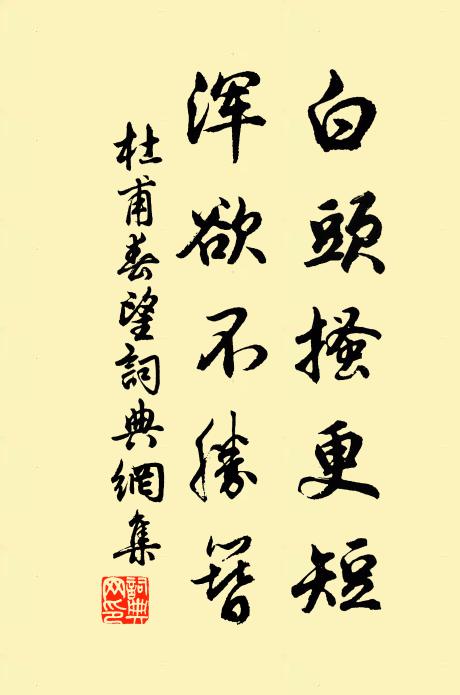 白頭搔更短
渾欲不勝簪
杜甫春望詞典網集
詞典